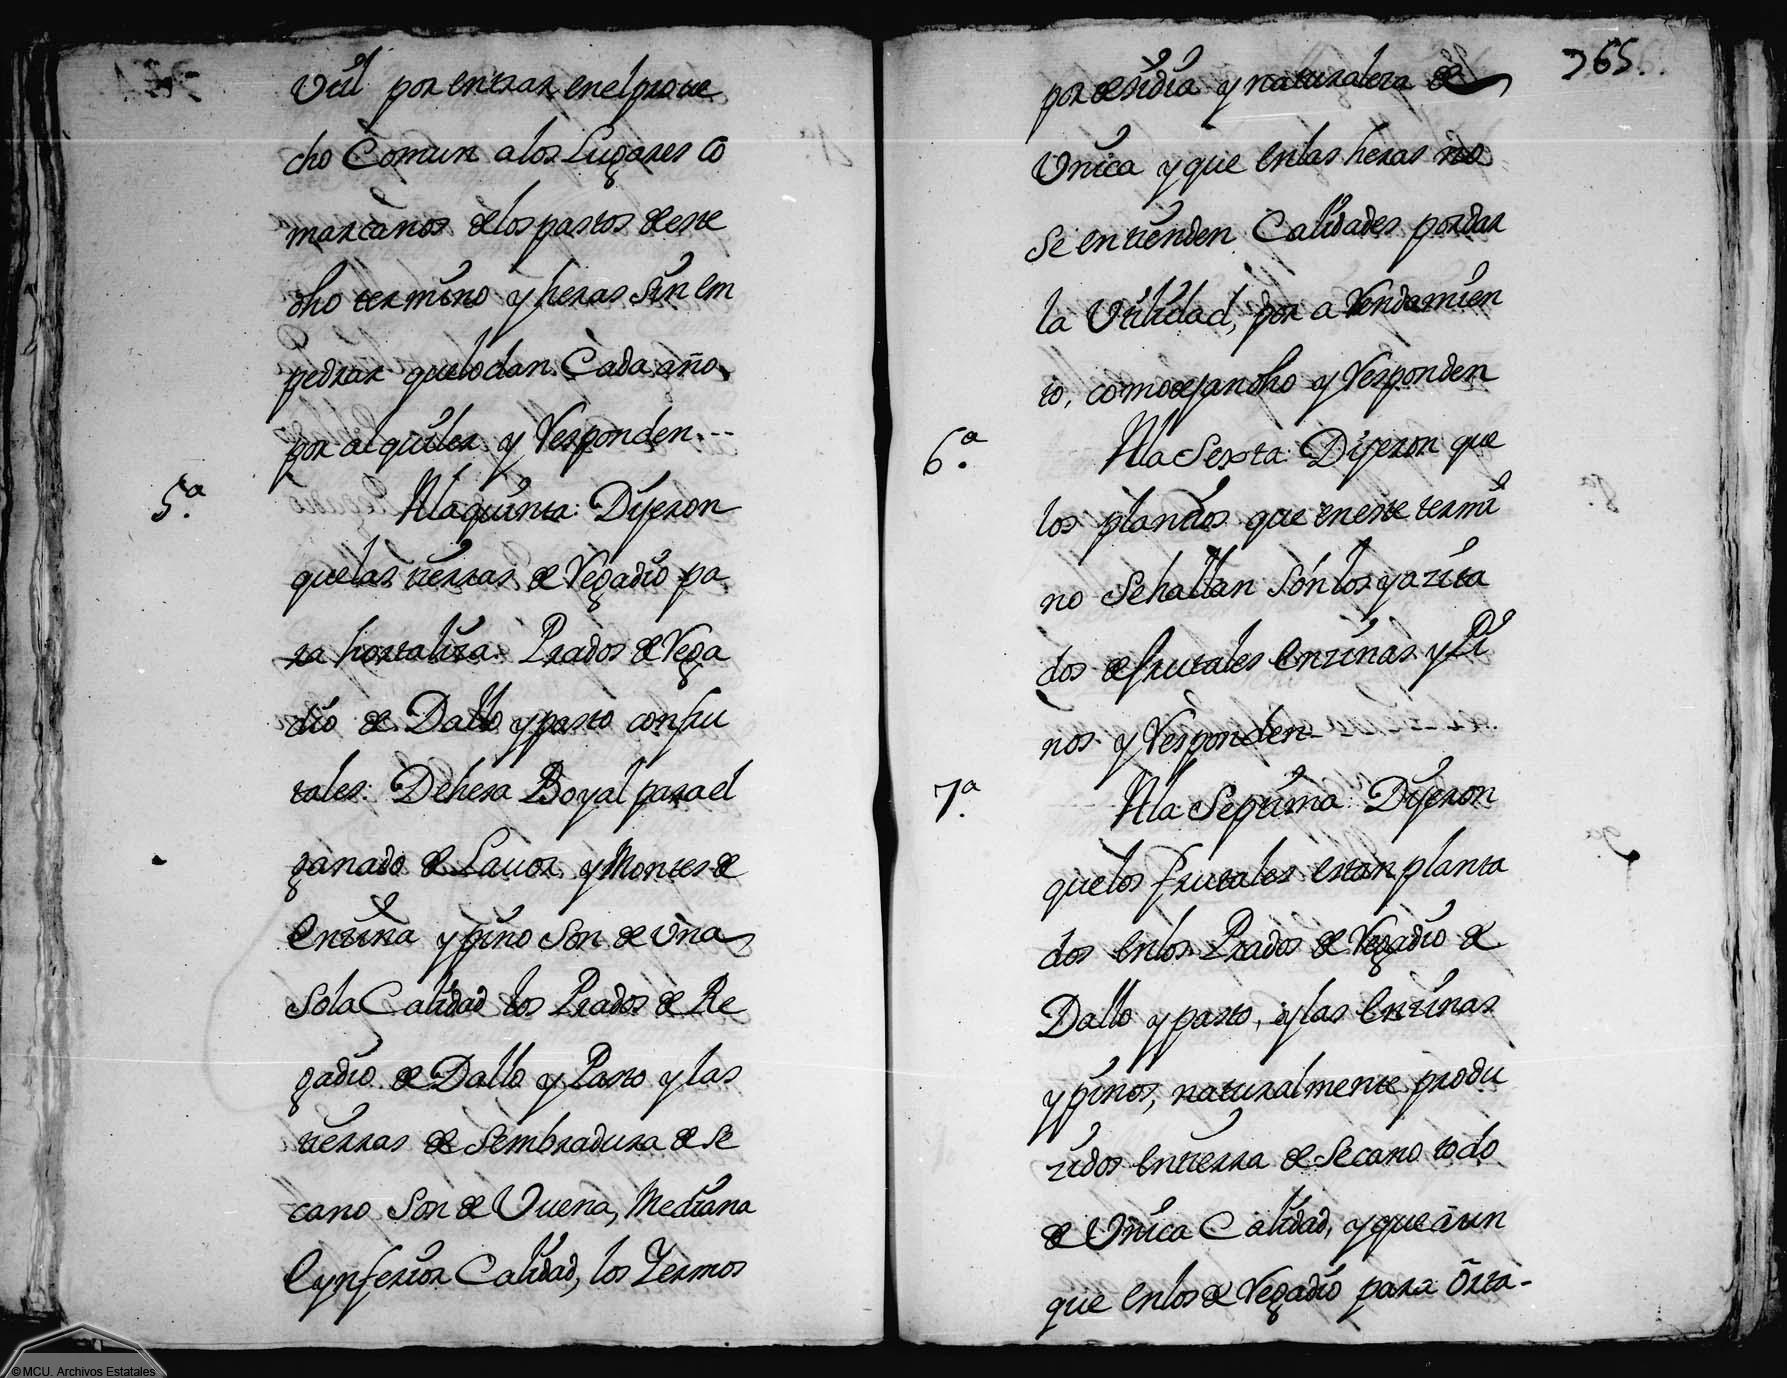 Util por entrar en el prove
cho Comun a los Lugares Co
marcanos de los pastos de este
dho termino y heras sin em
pedrar que lo dan Cada año
por alquiler y Responden.--
5.ª A la quinta: Dijeron
que las tierras de Regadio pa
ra hortaliza. Prados de Rega
dio de Dallo y pasto con fru
tales. Dehesa Boyal para el
ganado de Lavor y Montes de
Enzina y pino son de Una
Sola Calidad los Prados de Re
gadio de Dallo y Pasto y las
tierras de Sembradura de Se
cano Son de Vuena, Mediana
E ynferior Calidad, los Yermos
365.
por desidia y naturaleza de
Unica y que en las heras no
Se entienden Calidades por dar
la Utilidad, por a Rendamien
to, como dejan dho y Responden
6.ª A la Sexta: Dijeron que
los plantios que en este termi
no Se hallan Son los ya zita
dos de frutales Enzinas y Pi
nos y Responden-
7.ª A la Septima: Dijeron
que los frutales estan planta
dos en los Prados de Regadio de
Dallo y pasto, y las Enzinas
y pinos, naturalmente produ
zidos en tierra de Secano todo
de Unica Calidad, y que aun
que en los de Regadio para Orta-
©MCU. Archivos Estatales